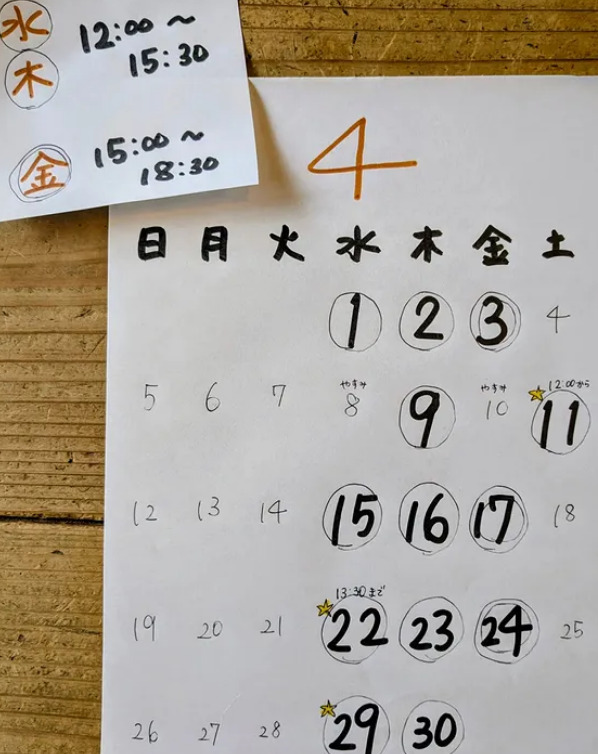 水 12:00～
木 15:30
金 15:00～
18:30
4
日 月 火 水 木 金 土
1 2 3 4
やすみ やすみ 12:00から
5 6 7 8 9 10 11
12 13 14 15 16 17 18
13:30まで
19 20 21 22 23 24 25
26 27 28 29 30